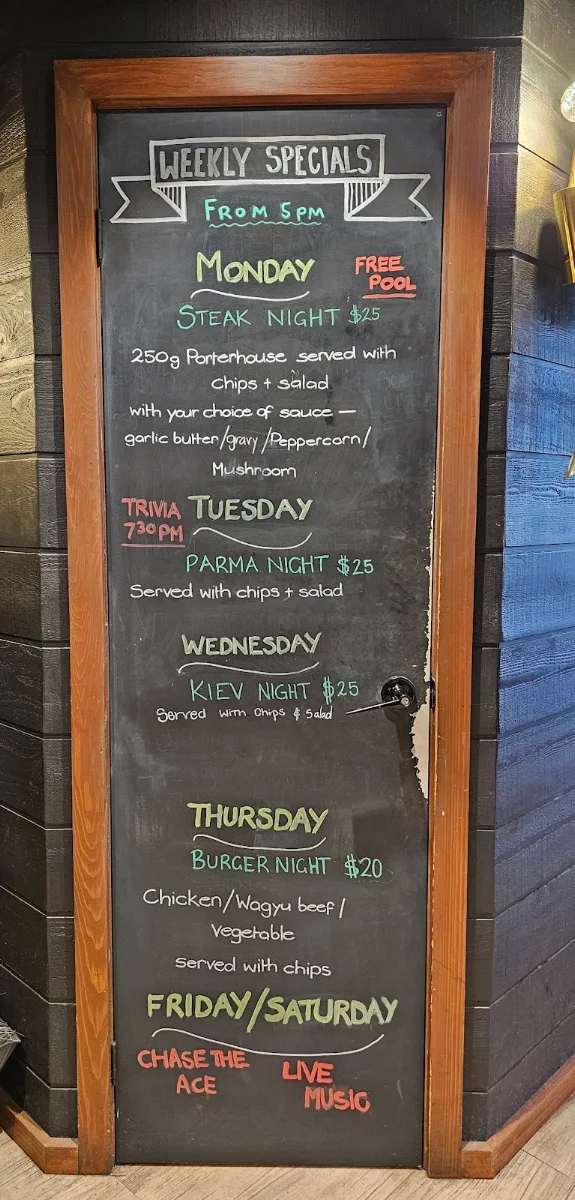 WEEKLY SPECIALS
FROM 5PM
MONDAY
FREE
POOL
STEAK NIGHT $25
250g Porterhouse served with
chips + salad
with your choice of sauce —
garlic butter/gravy/Peppercorn/
Mushroom
TRIVIA
730PM
TUESDAY
PARMA NIGHT $25
Served with chips + salad
WEDNESDAY
KIEV NIGHT $25
Served with Chips & Salad
THURSDAY
BURGER NIGHT $20
Chicken/Wagyu beef/
Vegetable
served with chips
FRIDAY/SATURDAY
CHASE THE
ACE
LIVE
MUSIC